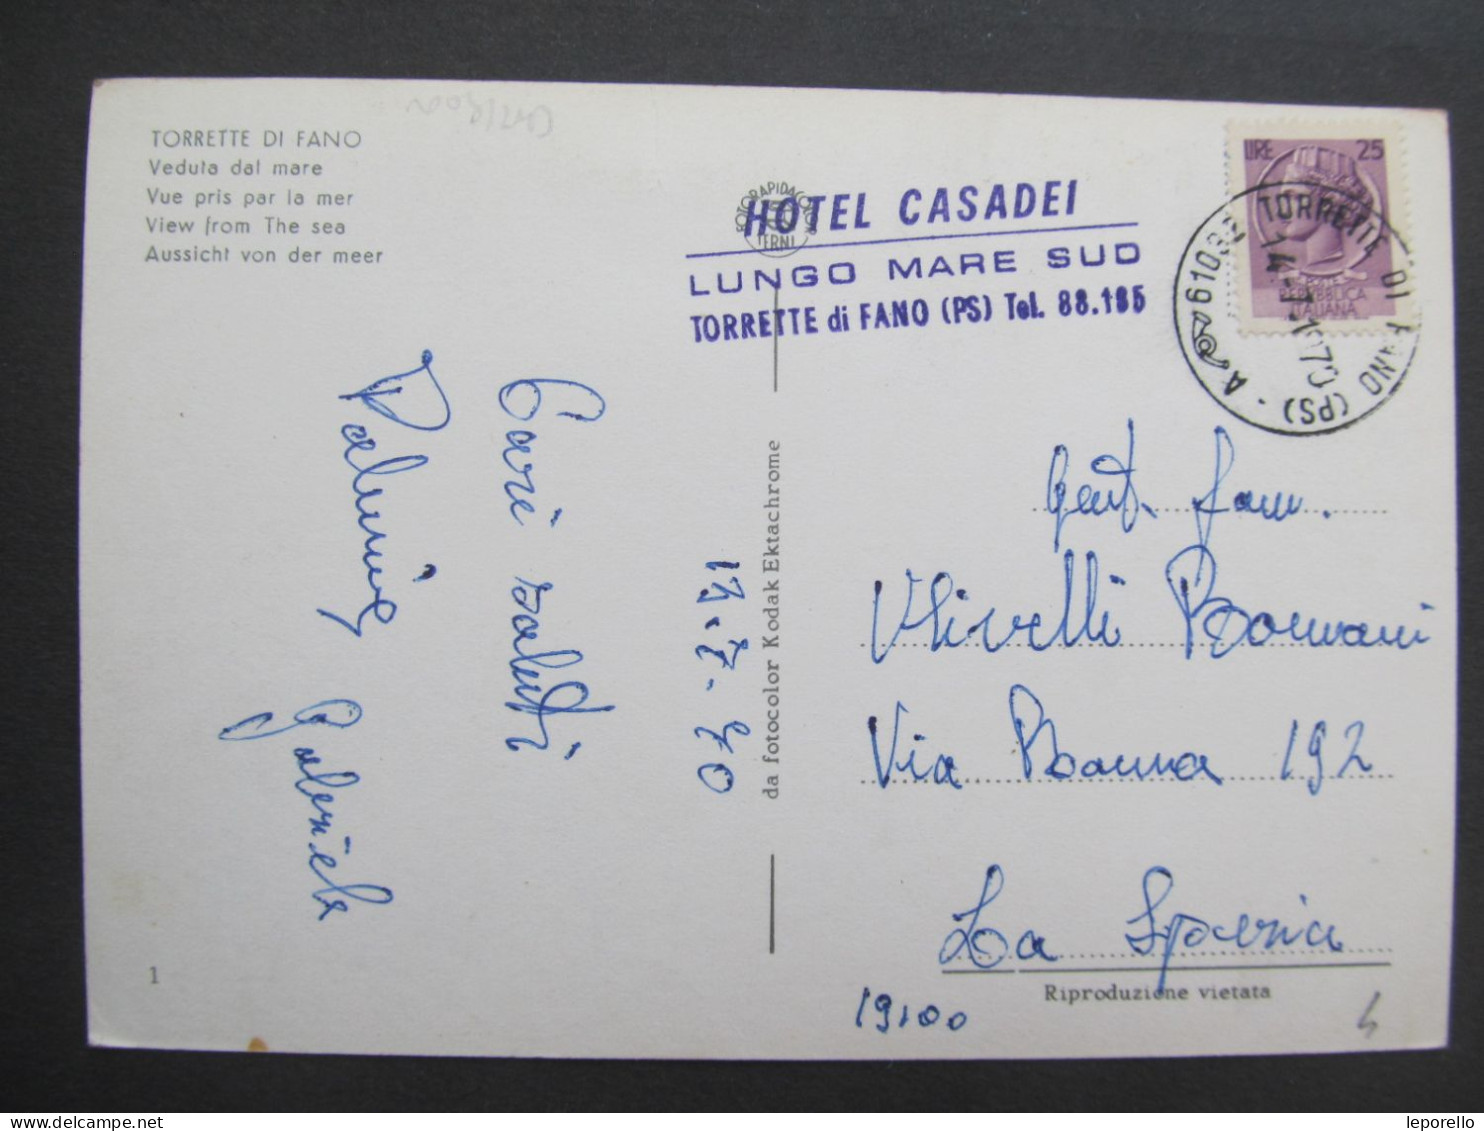 TORRETTE DI FANO
Veduta dal mare
Vue pris par la mer
View from The sea
Aussicht von der meer
FOTORAPIDACOLOR
TERNI
HOTEL CASADEI
LUNGO MARE SUD
TORRETTE di FANO (PS) Tel. 88.195
LIRE 25
POSTE
REPUBBLICA
ITALIANA
61039 TORRETTE DI FANO (PS) · A
14-7.1970
Cari saluti
Gabriele
13.7.70
da fotocolor Kodak Ektachrome
Gent. fam.
Via 192
La Spezia
19100
Riproduzione vietata
1
leporello